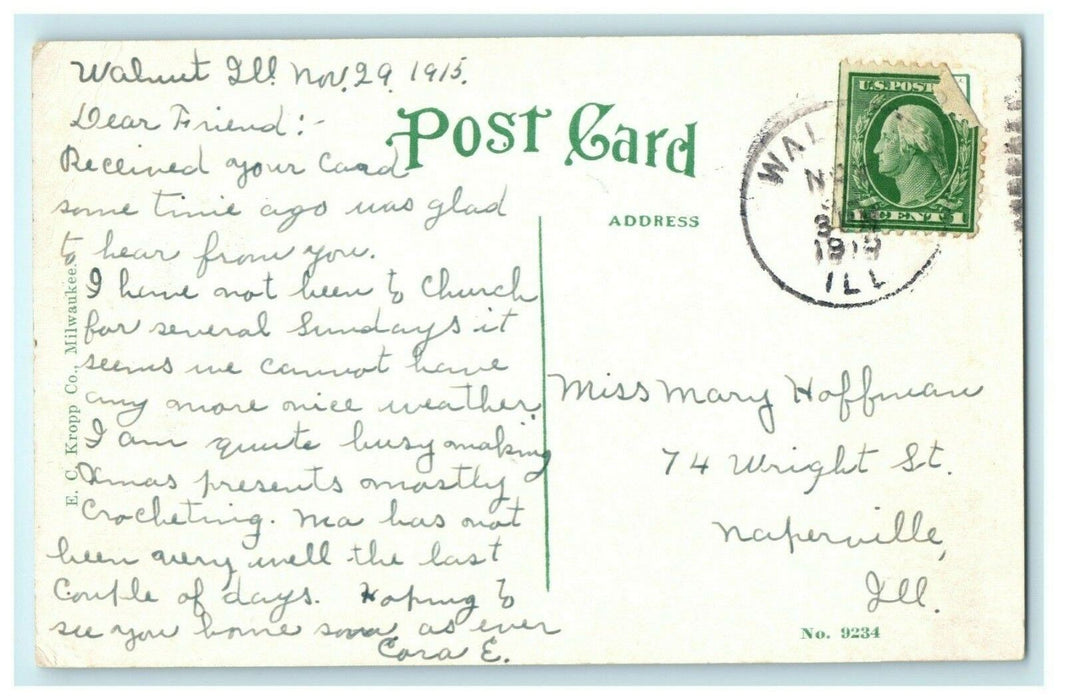 Walnut Ill. Nov. 29 1915.
Dear Friend:-
Received your Card
some time ago was glad
to hear from you.
I have not been to Church
for several Sundays it
seems we cannot have
any more nice weather.
I am quite busy making
Xmas presents mostly
Crocheting. Ma has not
been very well the last
Couple of days. Hoping to
see you home soon as ever
Cora E.
E. C. Kropp Co., Milwaukee.
Post Card
ADDRESS
WAL
N
3
1915
ILL
U.S. POST
1 CENT 1
Miss Mary Hoffman
74 Wright St.
Naperville,
Ill.
No. 9234